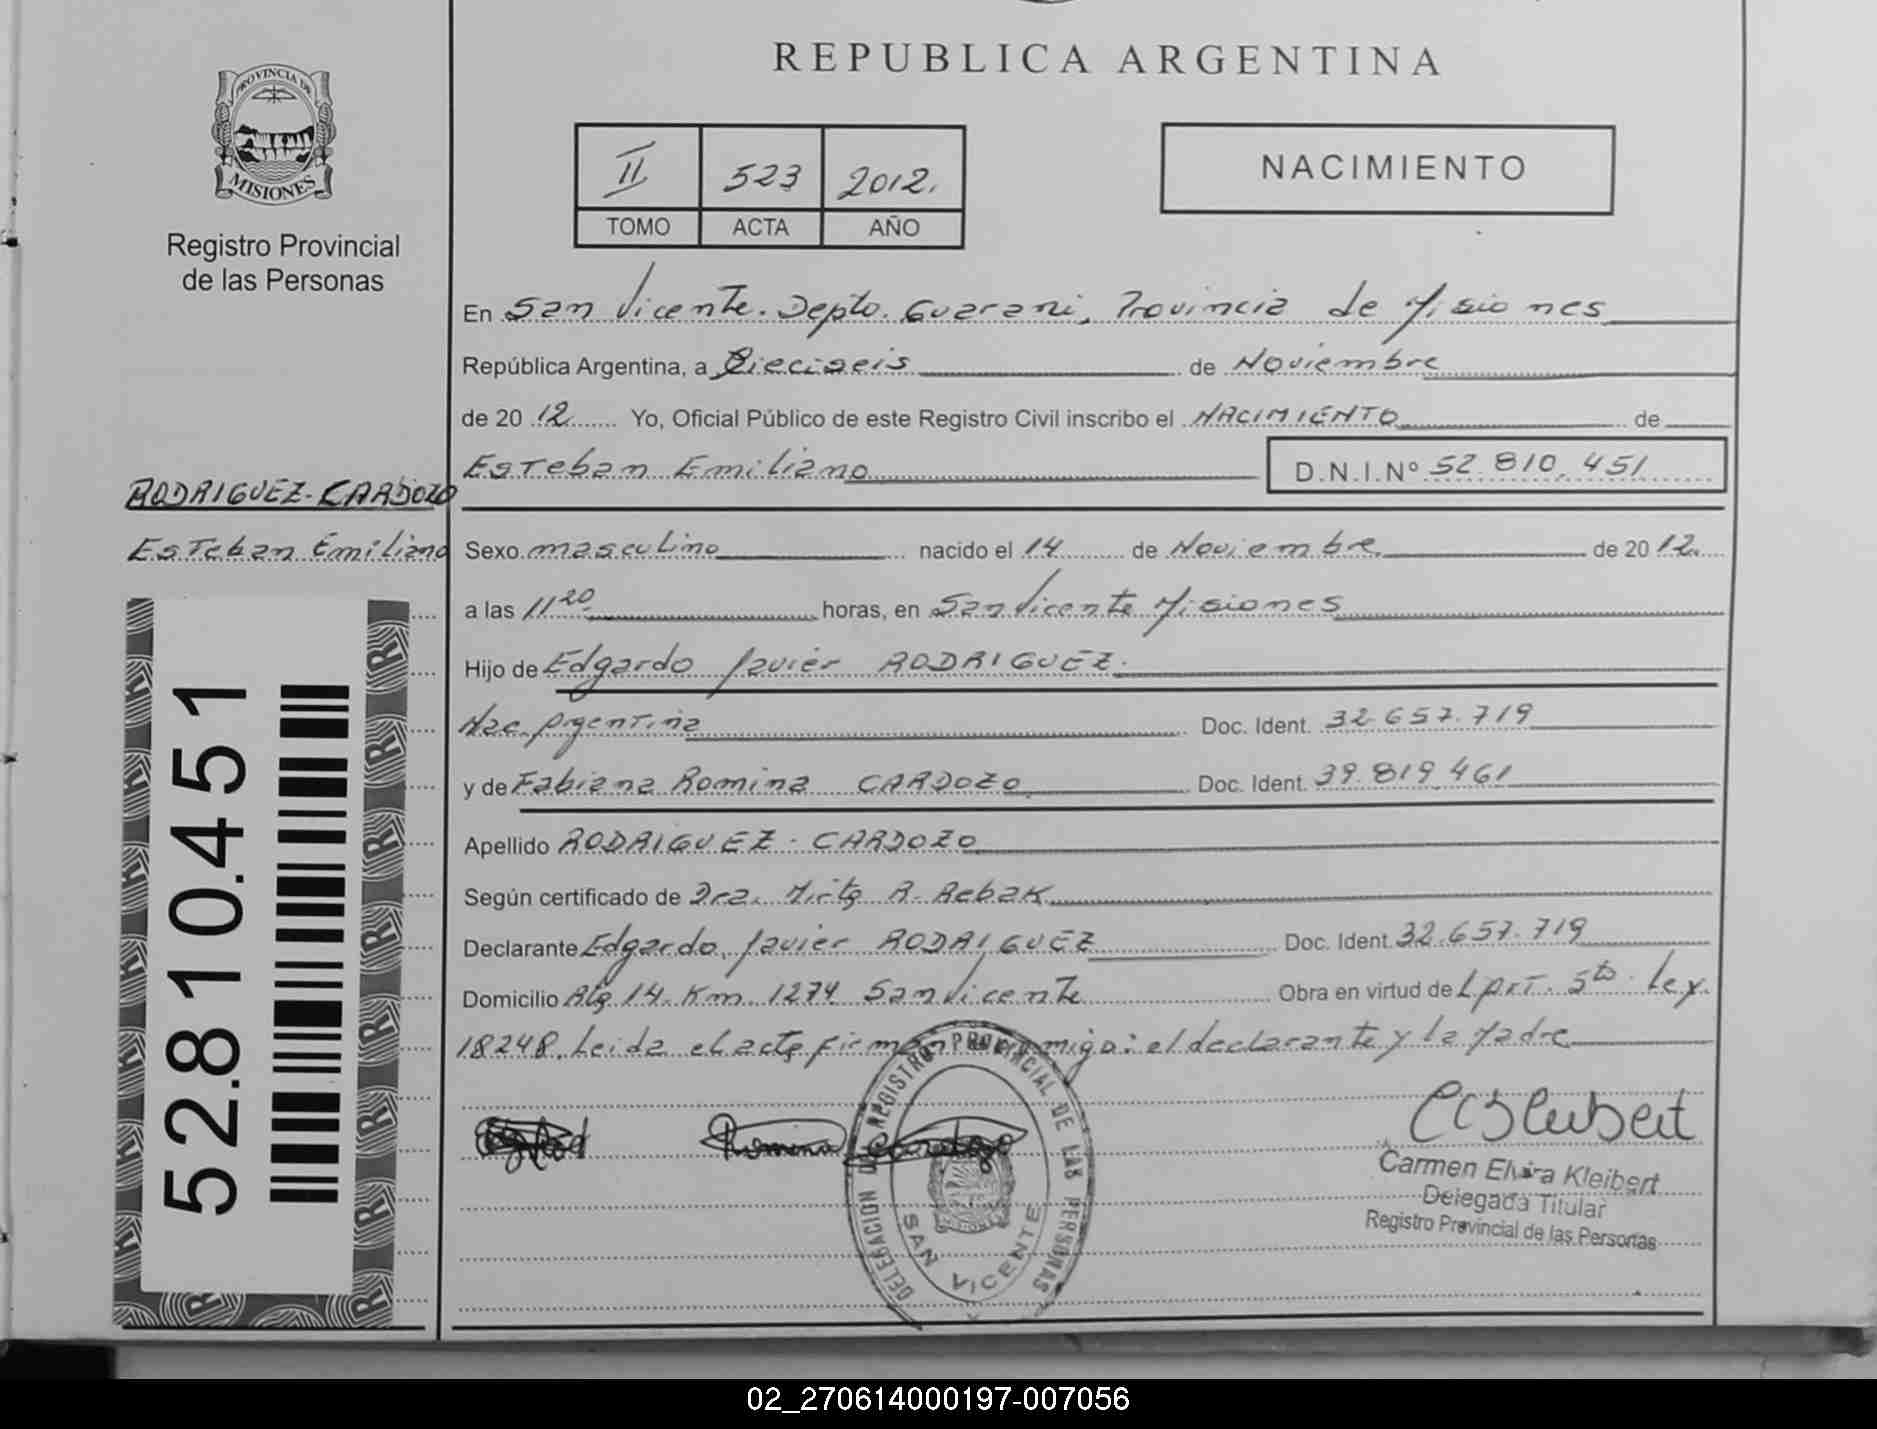 REPUBLICA ARGENTINA
PROVINCIA DE
MISIONES
Registro Provincial
de las Personas
II 523 2012.
TOMO ACTA AÑO
NACIMIENTO
En San Vicente. Depto. Guarani, Provincia de Misiones
República Argentina, a Dieciseis de Noviembre
de 20 12 Yo, Oficial Público de este Registro Civil inscribo el NACIMIENTO de
Esteban Emiliano D.N.I.Nº 52.810.451
RODRIGUEZ-CARDOZO
Esteban Emiliano
Sexo masculino nacido el 14 de Noviembre de 20 12.
a las 11 20 horas, en San Vicente Misiones
Hijo de Edgardo Javier RODRIGUEZ.
Nac. Argentina Doc. Ident. 32.657.719
y de Fabiana Romina CARDOZO Doc. Ident. 39.819.461
Apellido RODRIGUEZ - CARDOZO
Según certificado de Dra. Mirta R. Rebak
Declarante Edgardo Javier RODRIGUEZ Doc. Ident. 32.657.719
Domicilio Alg. 14. Km. 1274 San Vicente Obra en virtud de L. Art. 5to. Ley
18248. Leida el acta firman conmigo: el declarante y la Madre
52.810.451
Romina Cardozo
DELEGACION DEL REGISTRO PROVINCIAL DE LAS PERSONAS
SAN VICENTE
Carmen Elvira Kleibert
Delegada Titular
Registro Provincial de las Personas
02_270614000197-007056